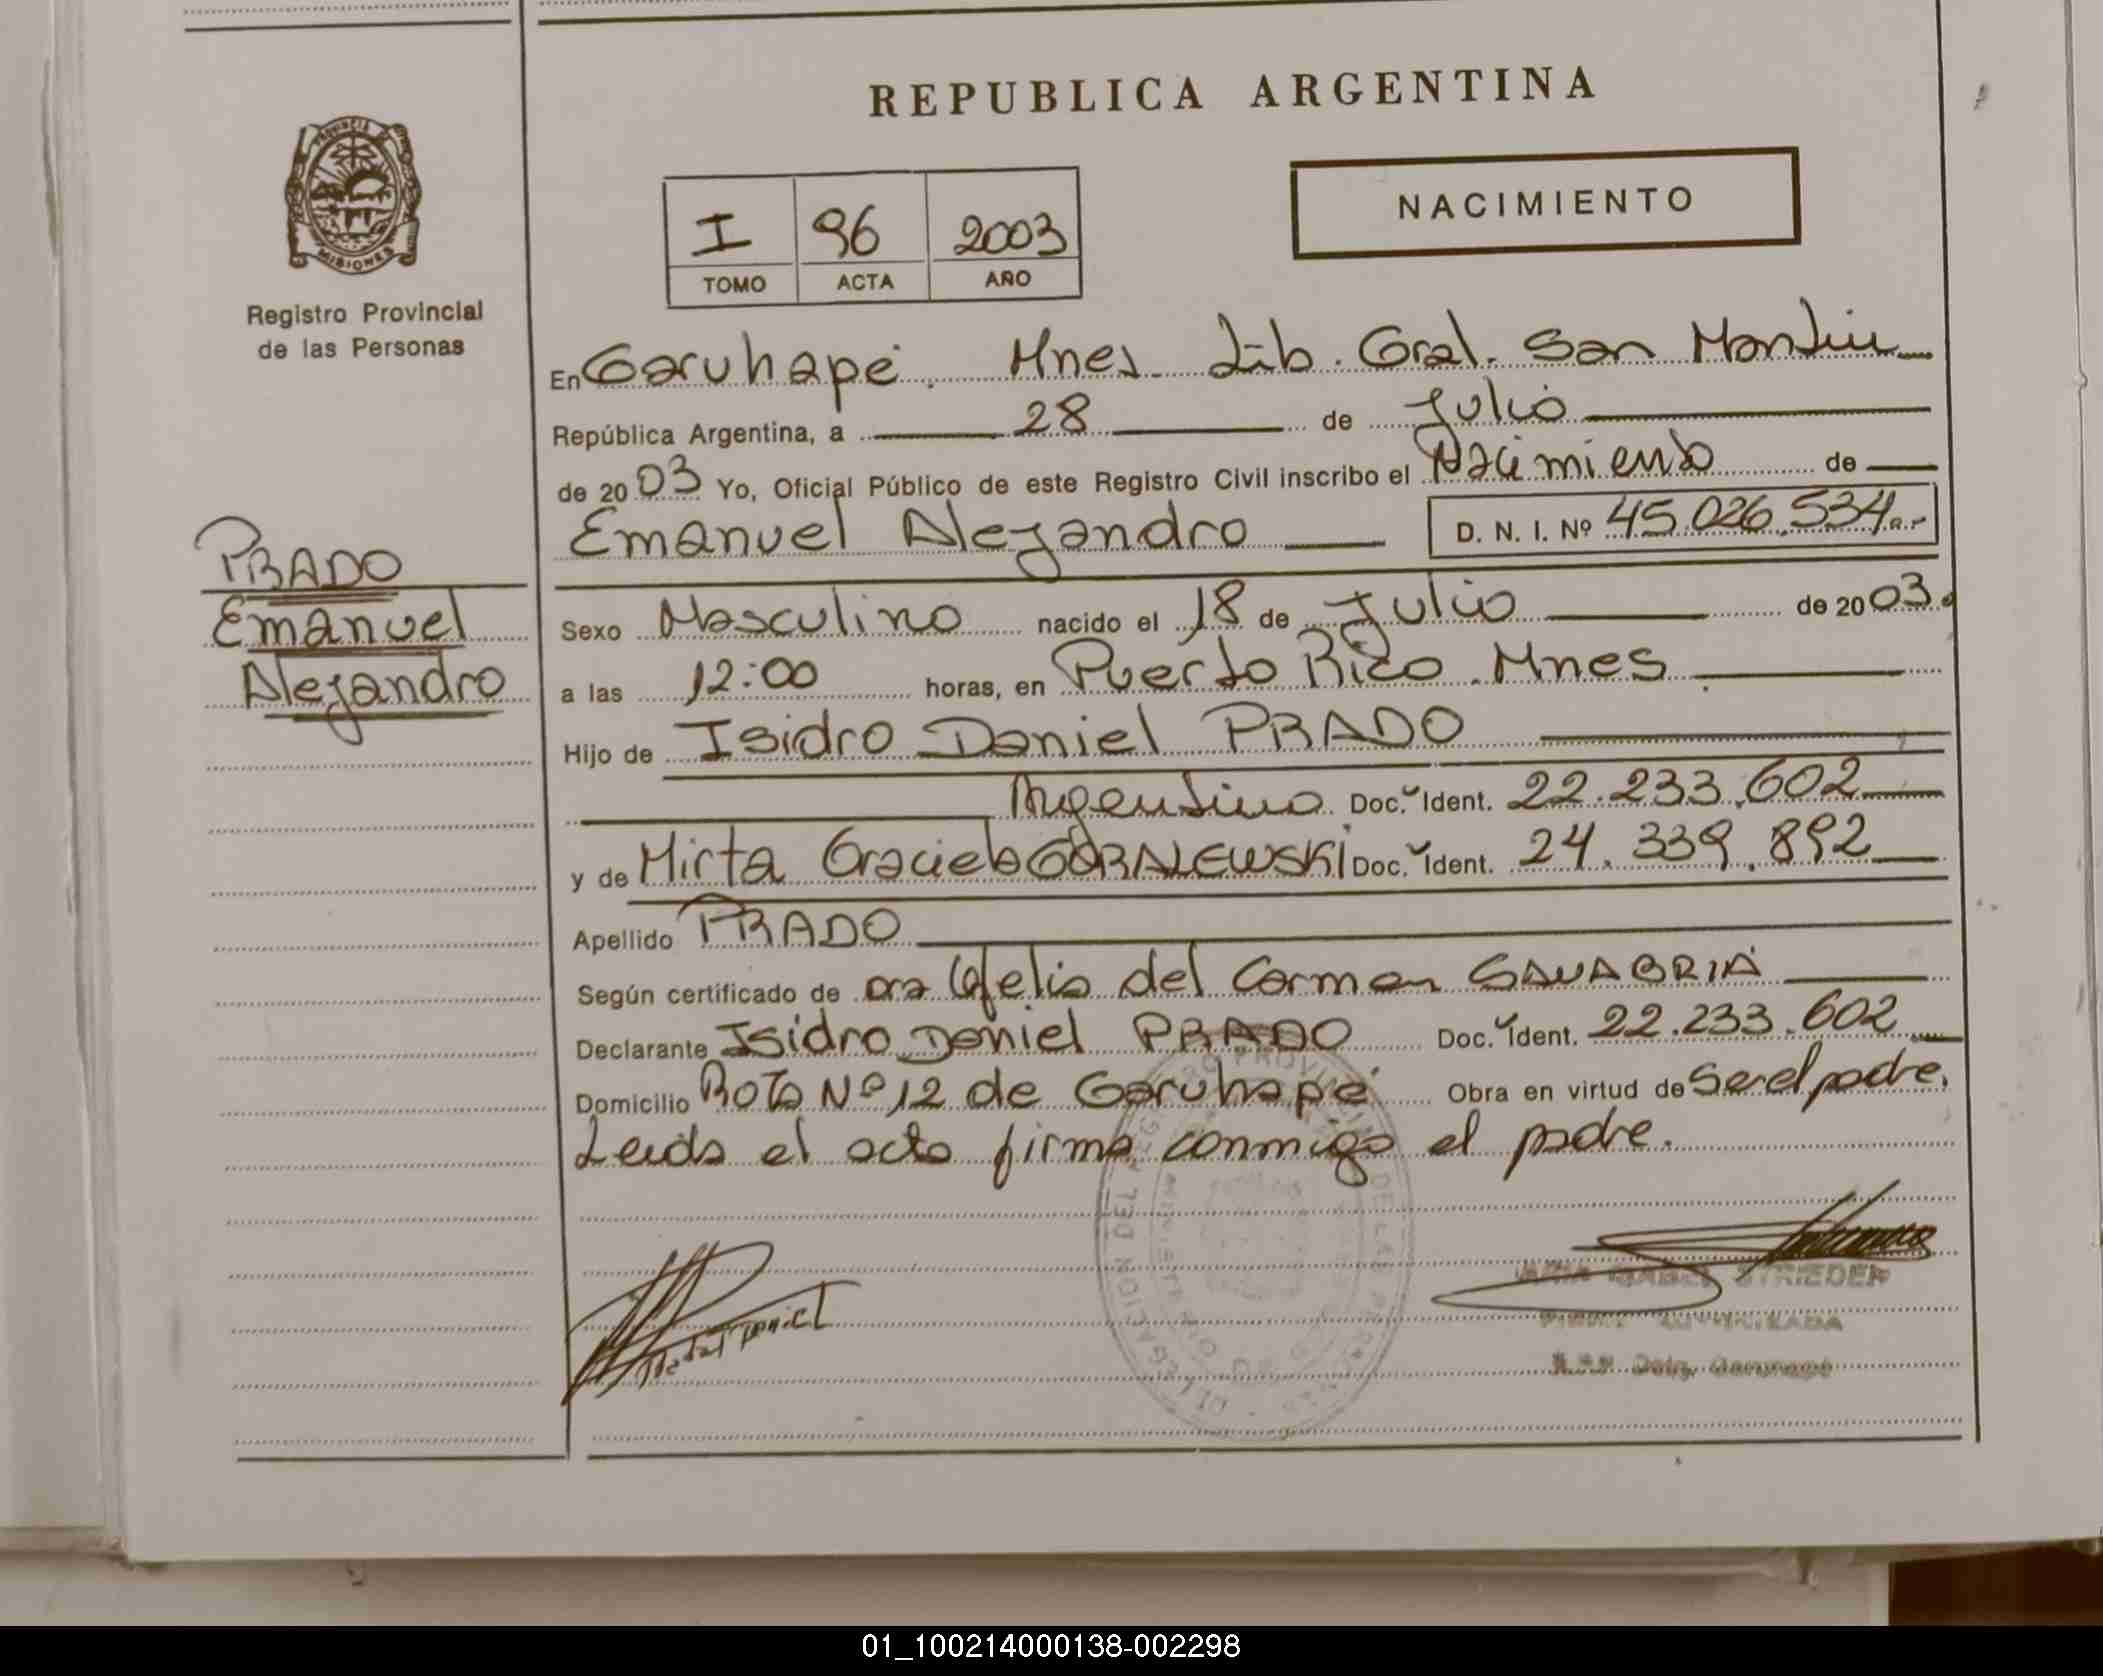 REPUBLICA ARGENTINA
PROVINCIA DE MISIONES
Registro Provincial
de las Personas
NACIMIENTO
I 96 2003
TOMO ACTA AÑO
En Garuhapé. Mnes Lib. Gral. San Martín
República Argentina, a 28 de Julio
de 2003 Yo, Oficial Público de este Registro Civil inscribo el Nacimiento de
Emanuel Alejandro D. N. I. Nº 45.026.534.-
PRADO
Emanuel
Alejandro
Sexo Masculino nacido el 18 de Julio de 2003.
a las 12:00 horas, en Puerto Rico. Mnes
Hijo de Isidro Daniel PRADO
Argentino. Doc. Ident. 22.233.602
y de Mirta Graciela GORALEWSKI Doc. Ident. 24.339.892
Apellido PRADO
Según certificado de Dra Ofelia del Carmen SANABRIA
Declarante Isidro Daniel PRADO Doc. Ident. 22.233.602
Domicilio Rota Nº 12 de Garuhapé Obra en virtud de Ser el padre.
Leída el acta firma conmigo el padre.
Prado Daniel
ISABEL STRIEDER
FIRMA AUTORIZADA
Deleg. Garuhapé
01_100214000138-002298